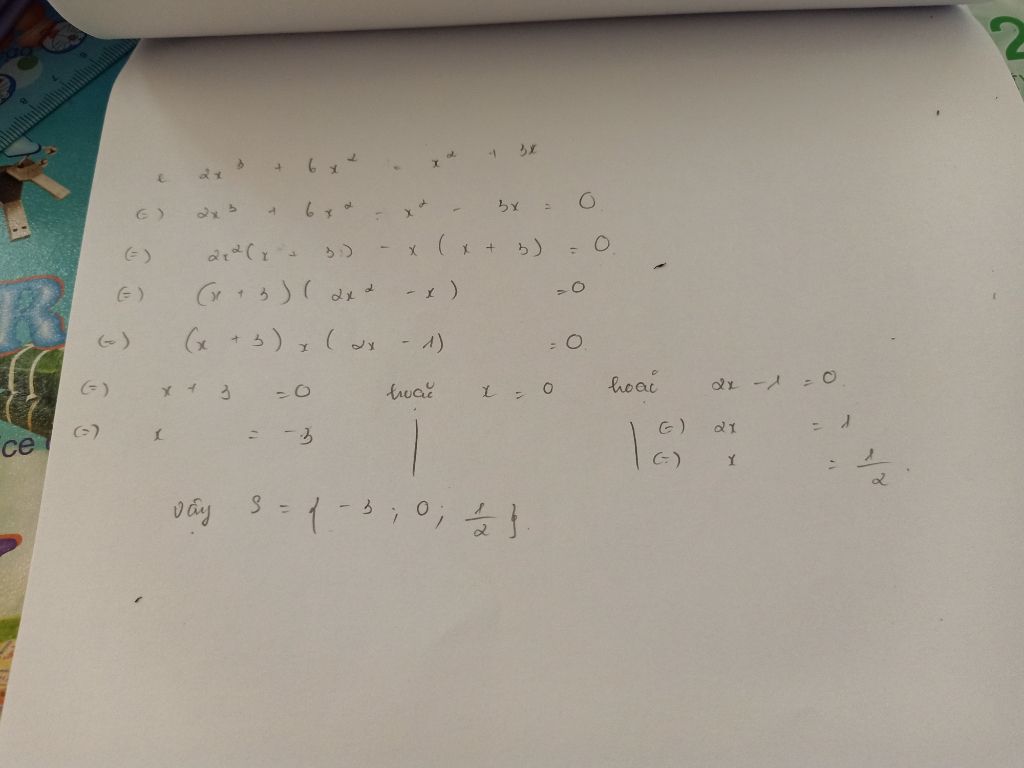 2
c 2x³ + 6x² = x² + 3x
(=) 2x³ + 6x² - x² - 3x = 0
(=) 2x²(x + 3) - x (x + 3) = 0
(=) (x + 3) ( 2x² - x) = 0
(=) (x + 3) x ( 2x - 1) = 0
(=) x + 3 = 0 hoặc x = 0 hoặc 2x - 1 = 0
(=) x = -3 | | (=) 2x = 1
(=) x = 1/2
Vậy S = { -3 ; 0 ; 1/2 }
R
ce